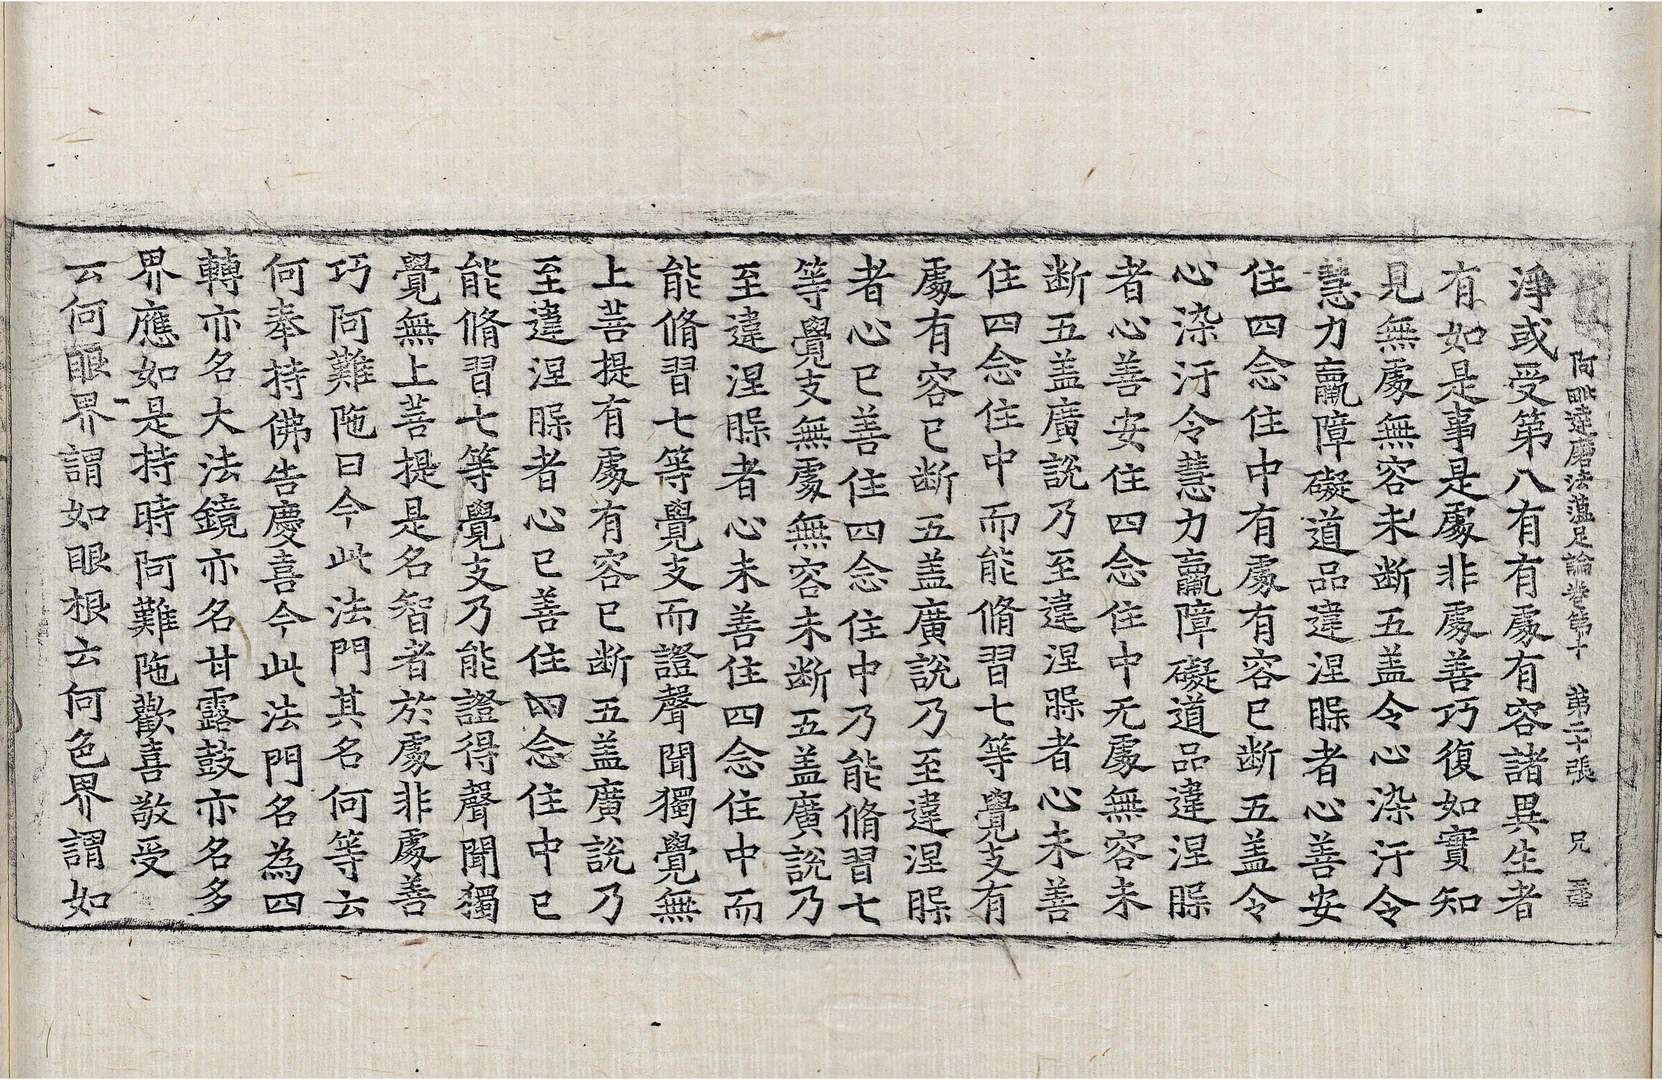 阿毗達磨法蘊足論卷第十 第二十張 兄
淨或受第八有有處有容諸異生者
有如是事是處非處善巧復如實知
見無處無容未断五盖令心染汙令
慧力羸障礙道品違涅槃者心善安
住四念住中有處有容已断五盖令
心染汙令慧力羸障礙道品違涅槃
者心善安住四念住中无處無容未
断五盖廣說乃至違涅槃者心未善
住四念住中而能脩習七等覺支有
處有容已断五盖廣說乃至違涅槃
者心已善住四念住中乃能脩習七
等覺支無處無容未断五盖廣說乃
至違涅槃者心未善住四念住中而
能脩習七等覺支而證聲聞獨覺無
上菩提有處有容已断五盖廣說乃
至違涅槃者心已善住四念住中已
能脩習七等覺支乃能證得聲聞獨
覺無上菩提是名智者於處非處善
巧阿難陁曰今此法門其名何等云
何奉持佛告慶喜今此法門名為四
轉亦名大法鏡亦名甘露鼓亦名多
界應如是持時阿難陁歡喜敬受
云何眼界謂如眼根云何色界謂如